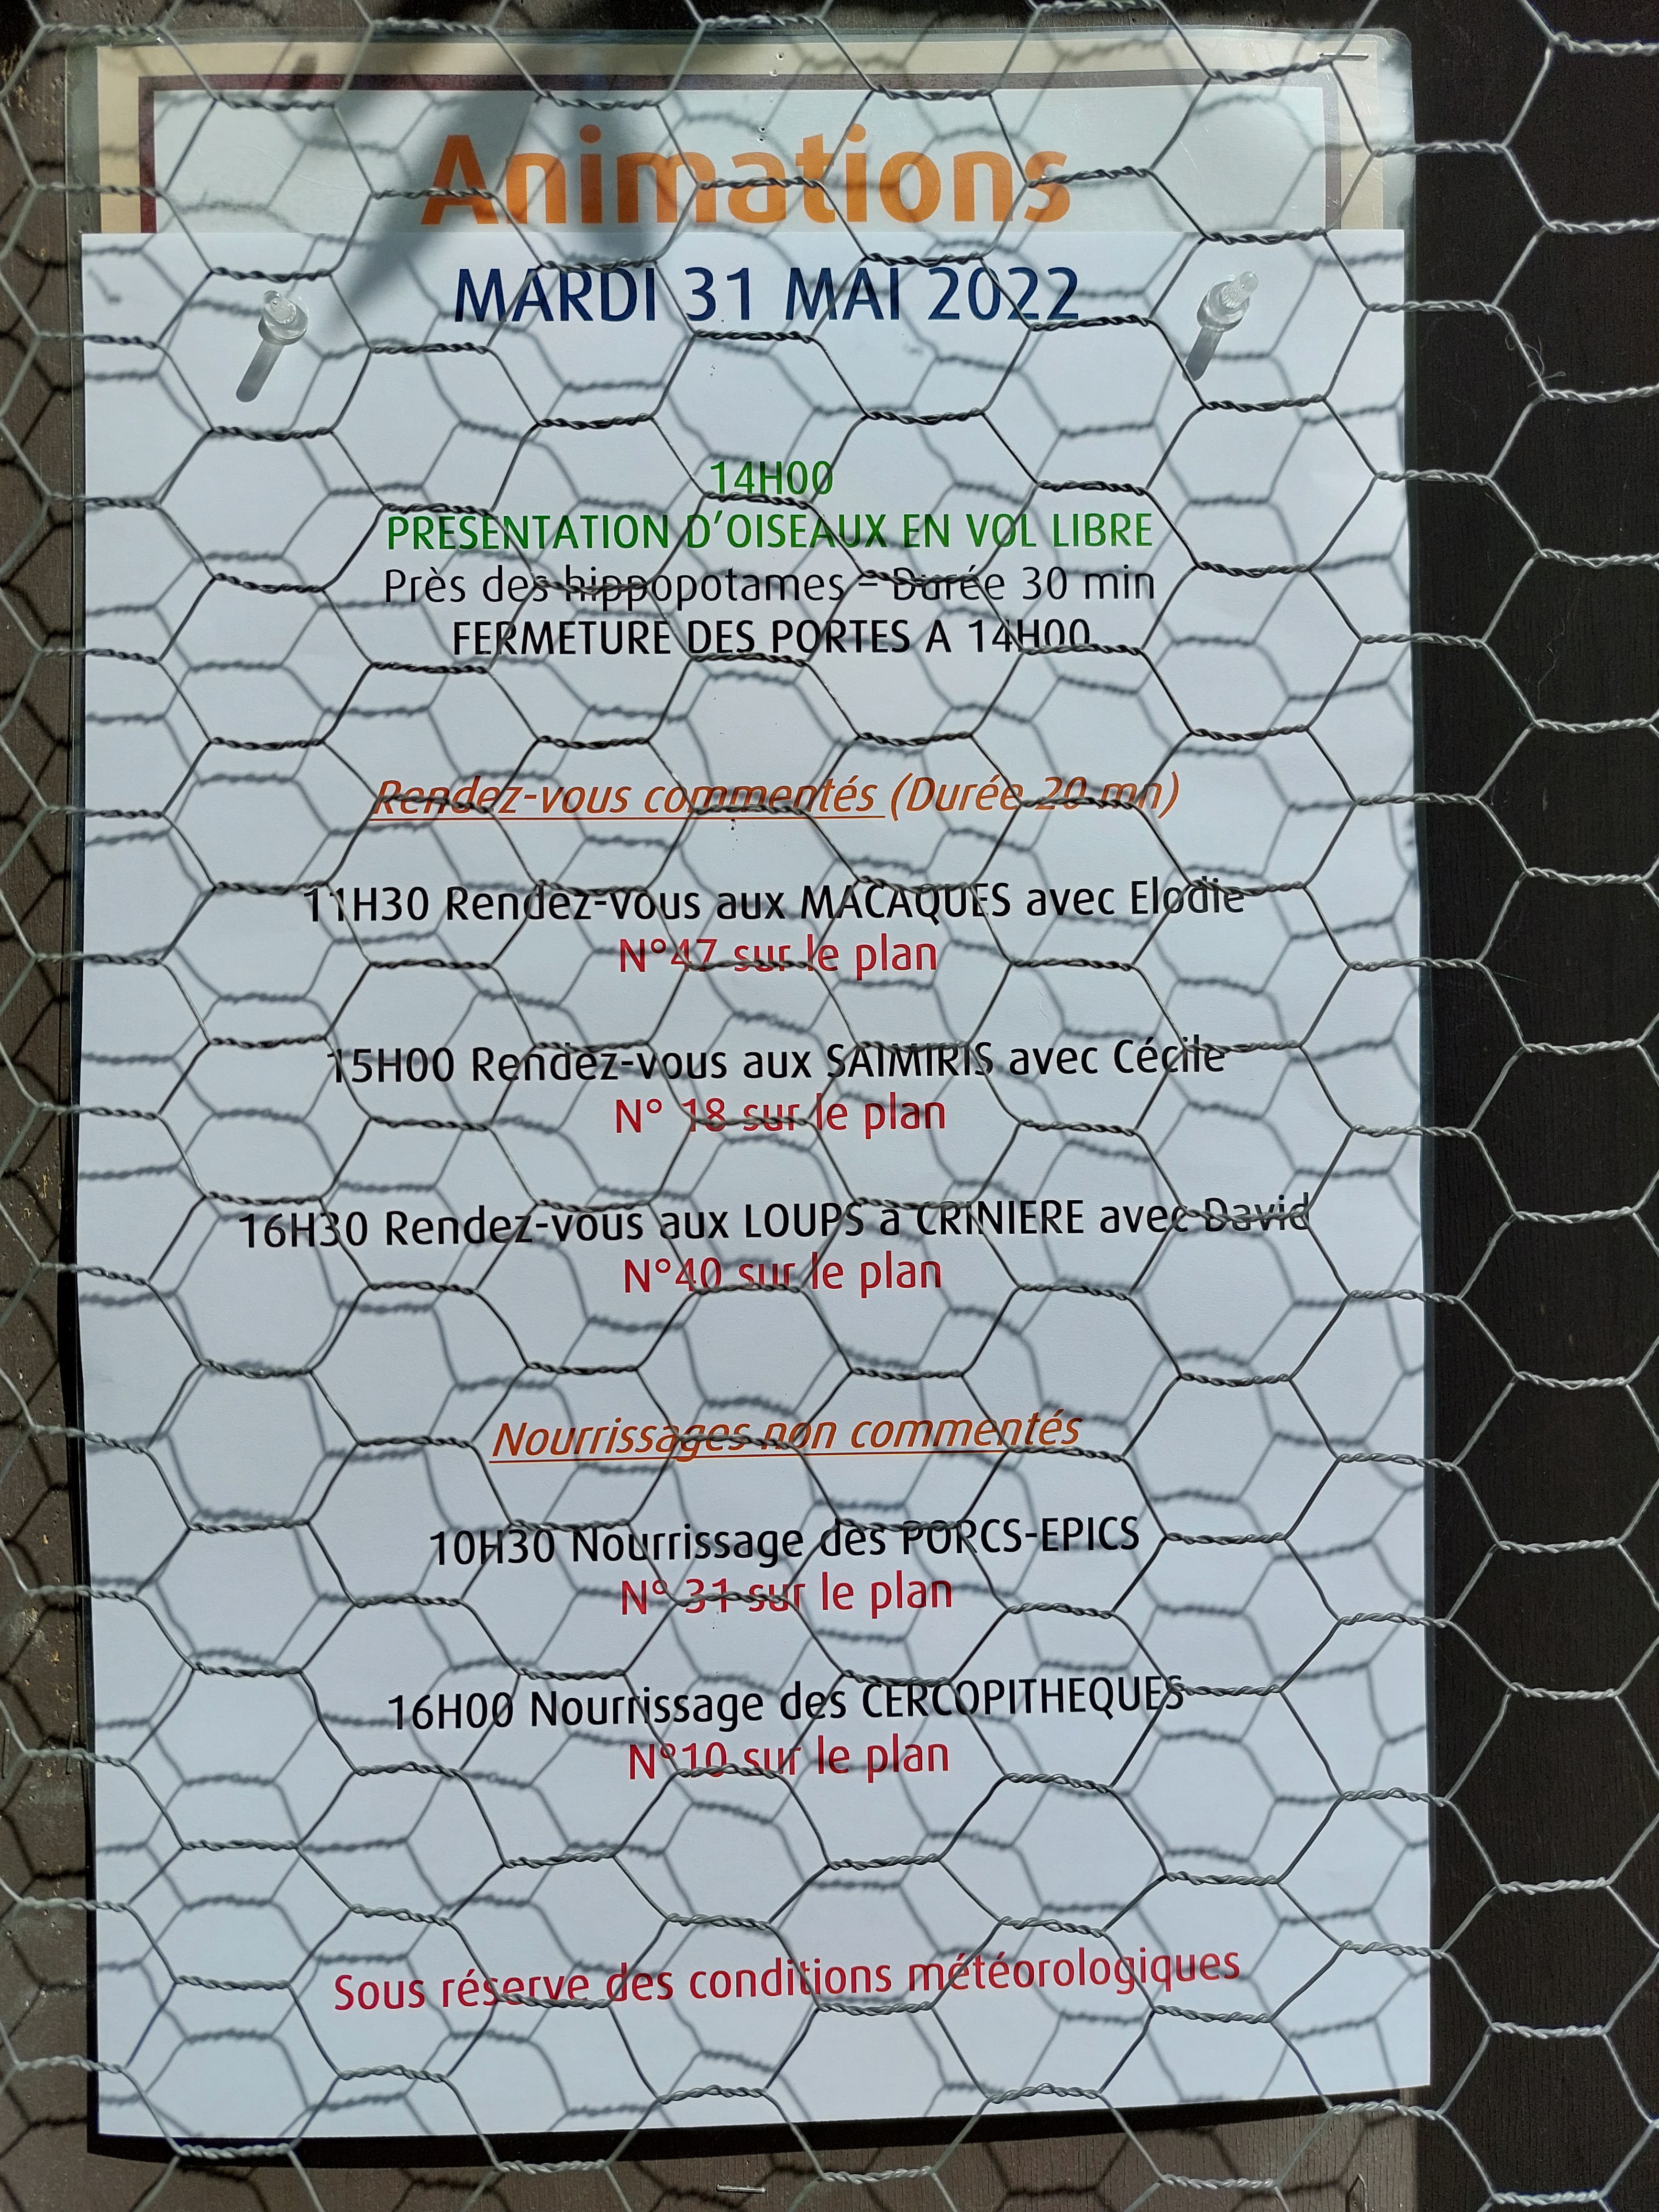 Animations
MARDI 31 MAI 2022
14H00
PRESENTATION D'OISEAUX EN VOL LIBRE
Près des hippopotames – Durée 30 min
FERMETURE DES PORTES A 14H00
Rendez-vous commentés (Durée 20 mn)
11H30 Rendez-vous aux MACAQUES avec Elodie
N°47 sur le plan
15H00 Rendez-vous aux SAIMIRIS avec Cécile
N° 18 sur le plan
16H30 Rendez-vous aux LOUPS à CRINIERE avec David
N°40 sur le plan
Nourrissages non commentés
10H30 Nourrissage des PORCS-EPICS
N° 31 sur le plan
16H00 Nourrissage des CERCOPITHEQUES
N°10 sur le plan
Sous réserve des conditions météorologiques